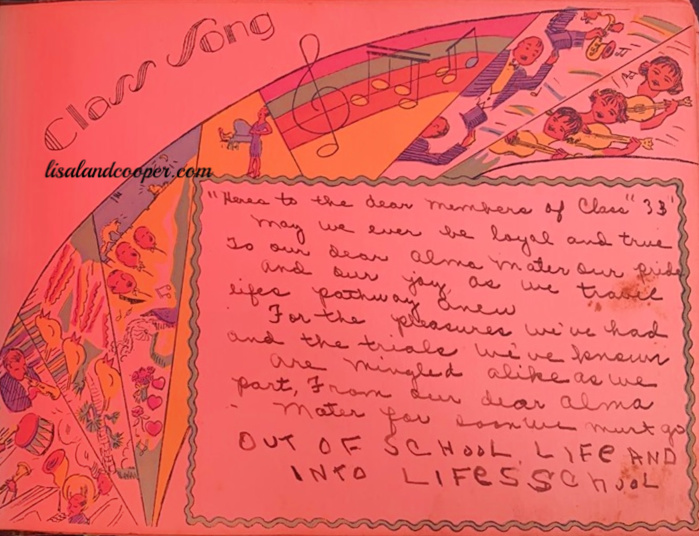 Class Song
lisalandcooper.com
"Heres to the dear members of Class "33"
May we ever be loyal and true
To our dear alma mater our pride
and our joy as we travel
lifes pathway anew
For the pleasures we've had
and the trials we've known
are mingled alike as we
part, From our dear alma
- Mater for soon we must go
OUT OF SCHOOL LIFE AND
INTO LIFES SCHOOL